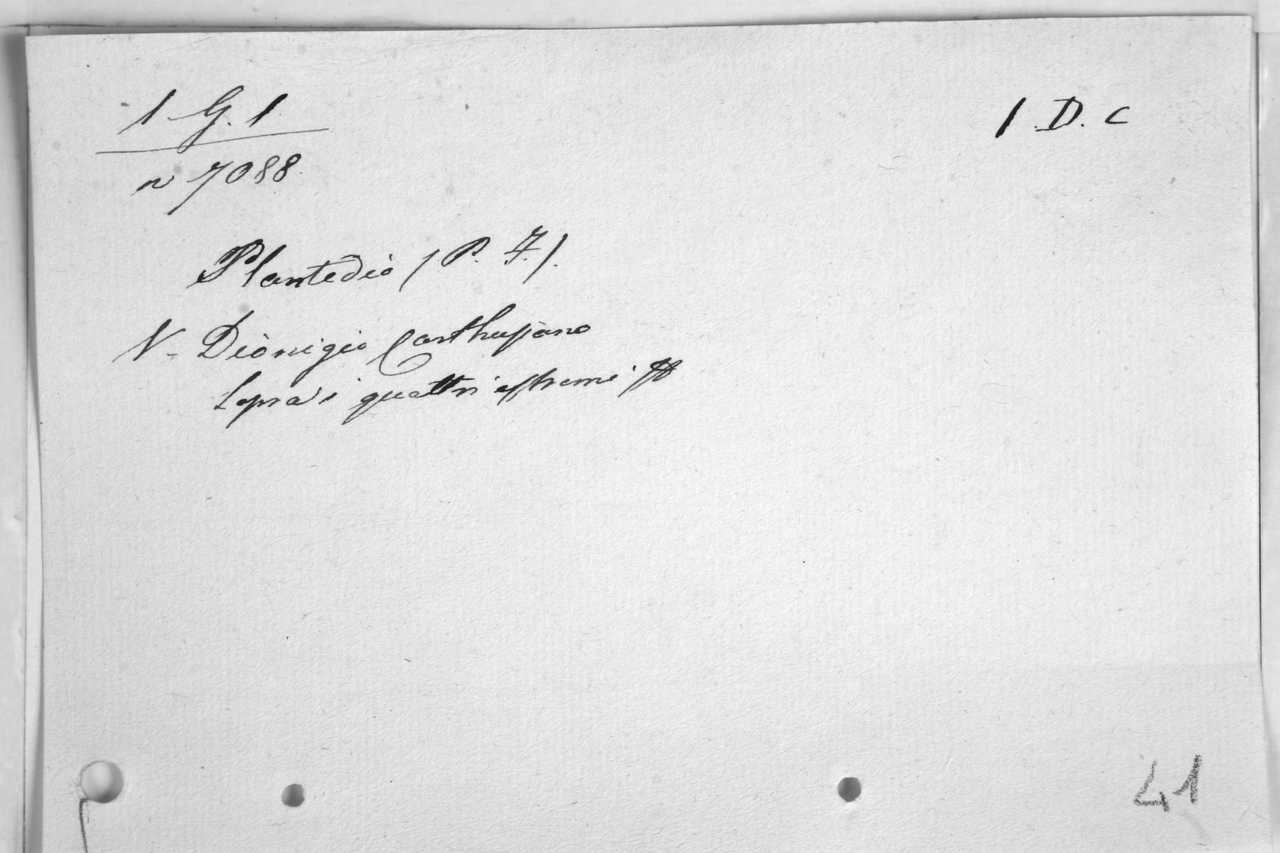 1 G. 1
1. D. C
n 7088
Plantedio (P. F.).
V. Dionigio Carthusiano
Sopra i quattri estremi
41